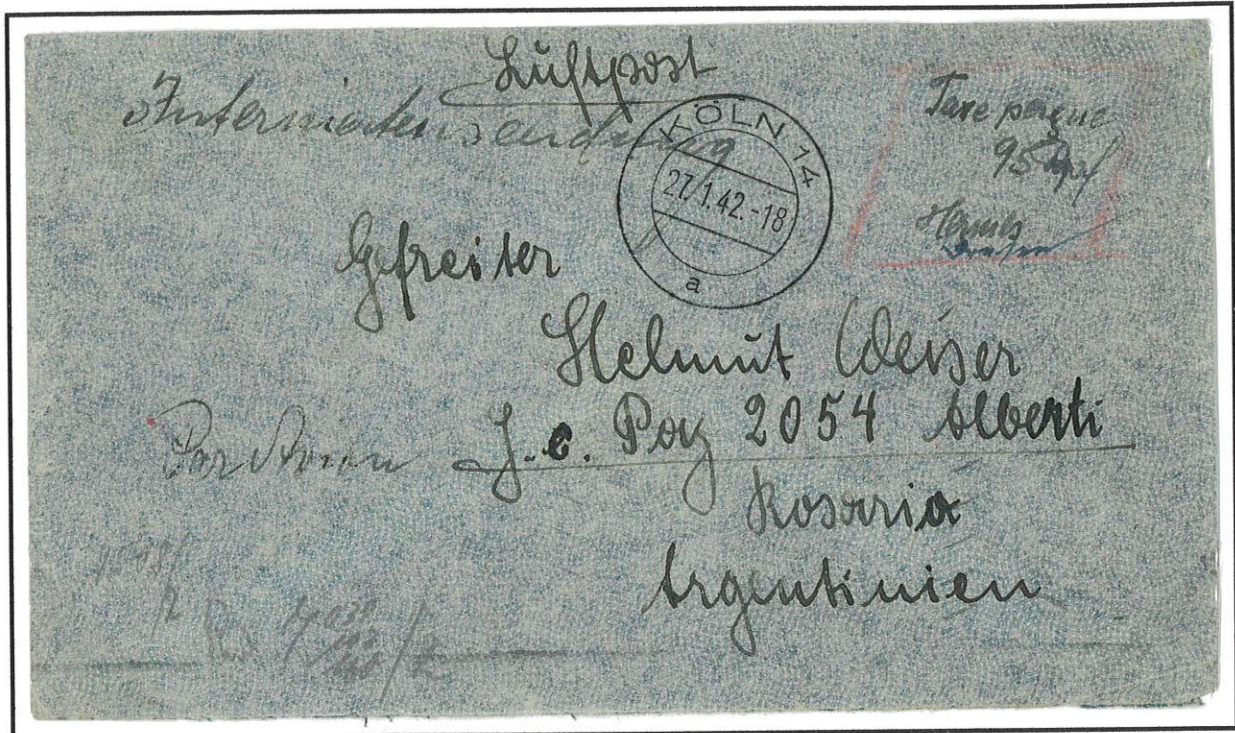 Luftpost
Internierten sendung
KÖLN 14
27.1.42.-18
a
Taxe perçue
95 Rpf
Gefreiter
Helmut Weiser
J.C. Paz 2054 Alberti
Par Avion
Rosario
Argentinien